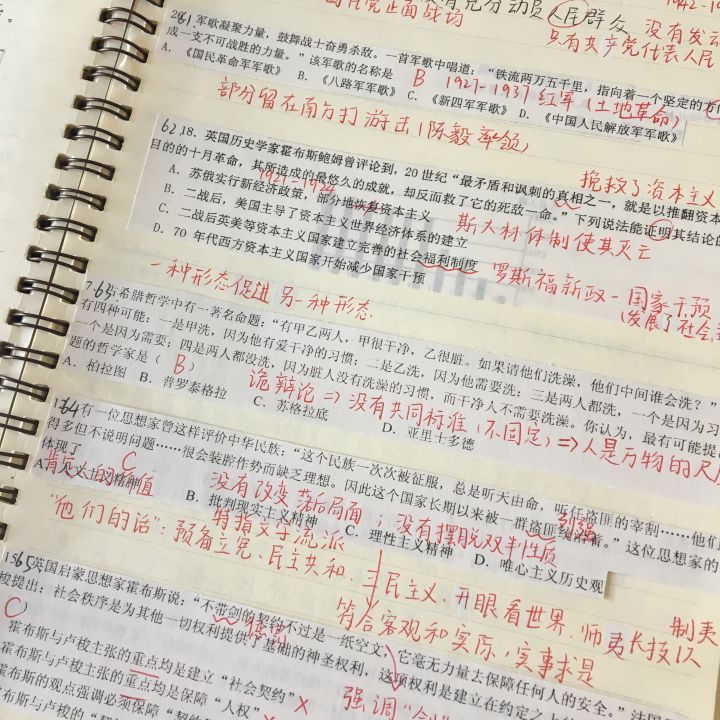 只有共产党代表人民
261.军歌凝聚力量，鼓舞战士奋勇杀敌。一首军歌中唱道：“铁流两万五千里，指向着一个坚定的方向
成一支不可战胜的力量。”该军歌的名称是 B 1927-1937 红军（土地革命）
A. 《国民革命军军歌》 B. 《八路军军歌》 C. 《新四军军歌》 D. 《中国人民解放军军歌》
部分留在南方打游击（陈毅率领）
62.18. 英国历史学家霍布斯鲍姆曾评论到，20 世纪“最矛盾和讽刺的真相之一，就是以推翻资本
挽救了资本主义
目的的十月革命，其所造成的最悠久的成就，却反而救了它的死敌一命。”下列说法能证明其结论
1921-1924
A. 苏俄实行新经济政策，部分地恢复资本主义
B. 二战后，美国主导了资本主义世界经济体系的建立
斯大林体制使其灭亡
C. 二战后英美等资本主义国家建立完善的社会福利制度
D. 70 年代西方资本主义国家开始减少国家干预
罗斯福新政-国家干预
（发展了社会
一种形态促进另一种形态
63.古希腊哲学中有一著名命题：“有甲乙两人，甲很干净，乙很脏。如果请他们洗澡，他们中间谁会洗？”
有四种可能：一是甲洗，因为他有爱干净的习惯；二是乙洗，因为他需要洗；三是两人都洗，一个是因为习
一个是因为需要；四是两人都没洗，因为脏人没有洗澡的习惯，而干净人不需要洗澡。你认为，最有可能提
题的哲学家是（ B ）
A. 柏拉图 B. 普罗泰格拉 C. 苏格拉底 D. 亚里士多德
诡辩论 => 没有共同标准（不固定）=> 人是万物的尺
64有一位思想家曾这样评价中华民族：“这个民族一次次被征服，总是听天由命，听任盗匪的宰割……他们
得多但不说明问题……很会装腔作势而缺乏理想。因此这个国家长期以来被一群盗匪统治着。”这位思想家的
体现了 C
A. 人文主义精神 B. 批判现实主义精神 C. 理性主义精神 D. 唯心主义历史观
肯定人的价值
没有改变落后局面；没有摆脱双半性质
特指文学流派
“他们的话”：预备立宪、民主共和、三民主义、开眼看世界、师夷长技以
制夷
符合客观和实际，实事求是
565英国启蒙思想家霍布斯说：“不带剑的契约不过是一纸空文，它毫无力量去保障任何人的安全。”法国
梭提出：社会秩序是为其他一切权利提供了基础的神圣权利，这项权利是建立在约定之上
C
霍布斯与卢梭主张的重点均是建立“社会契约” X
霍布斯与卢梭主张的重点均是保障“人权” X
霍布斯的观点强调必须保障
强调